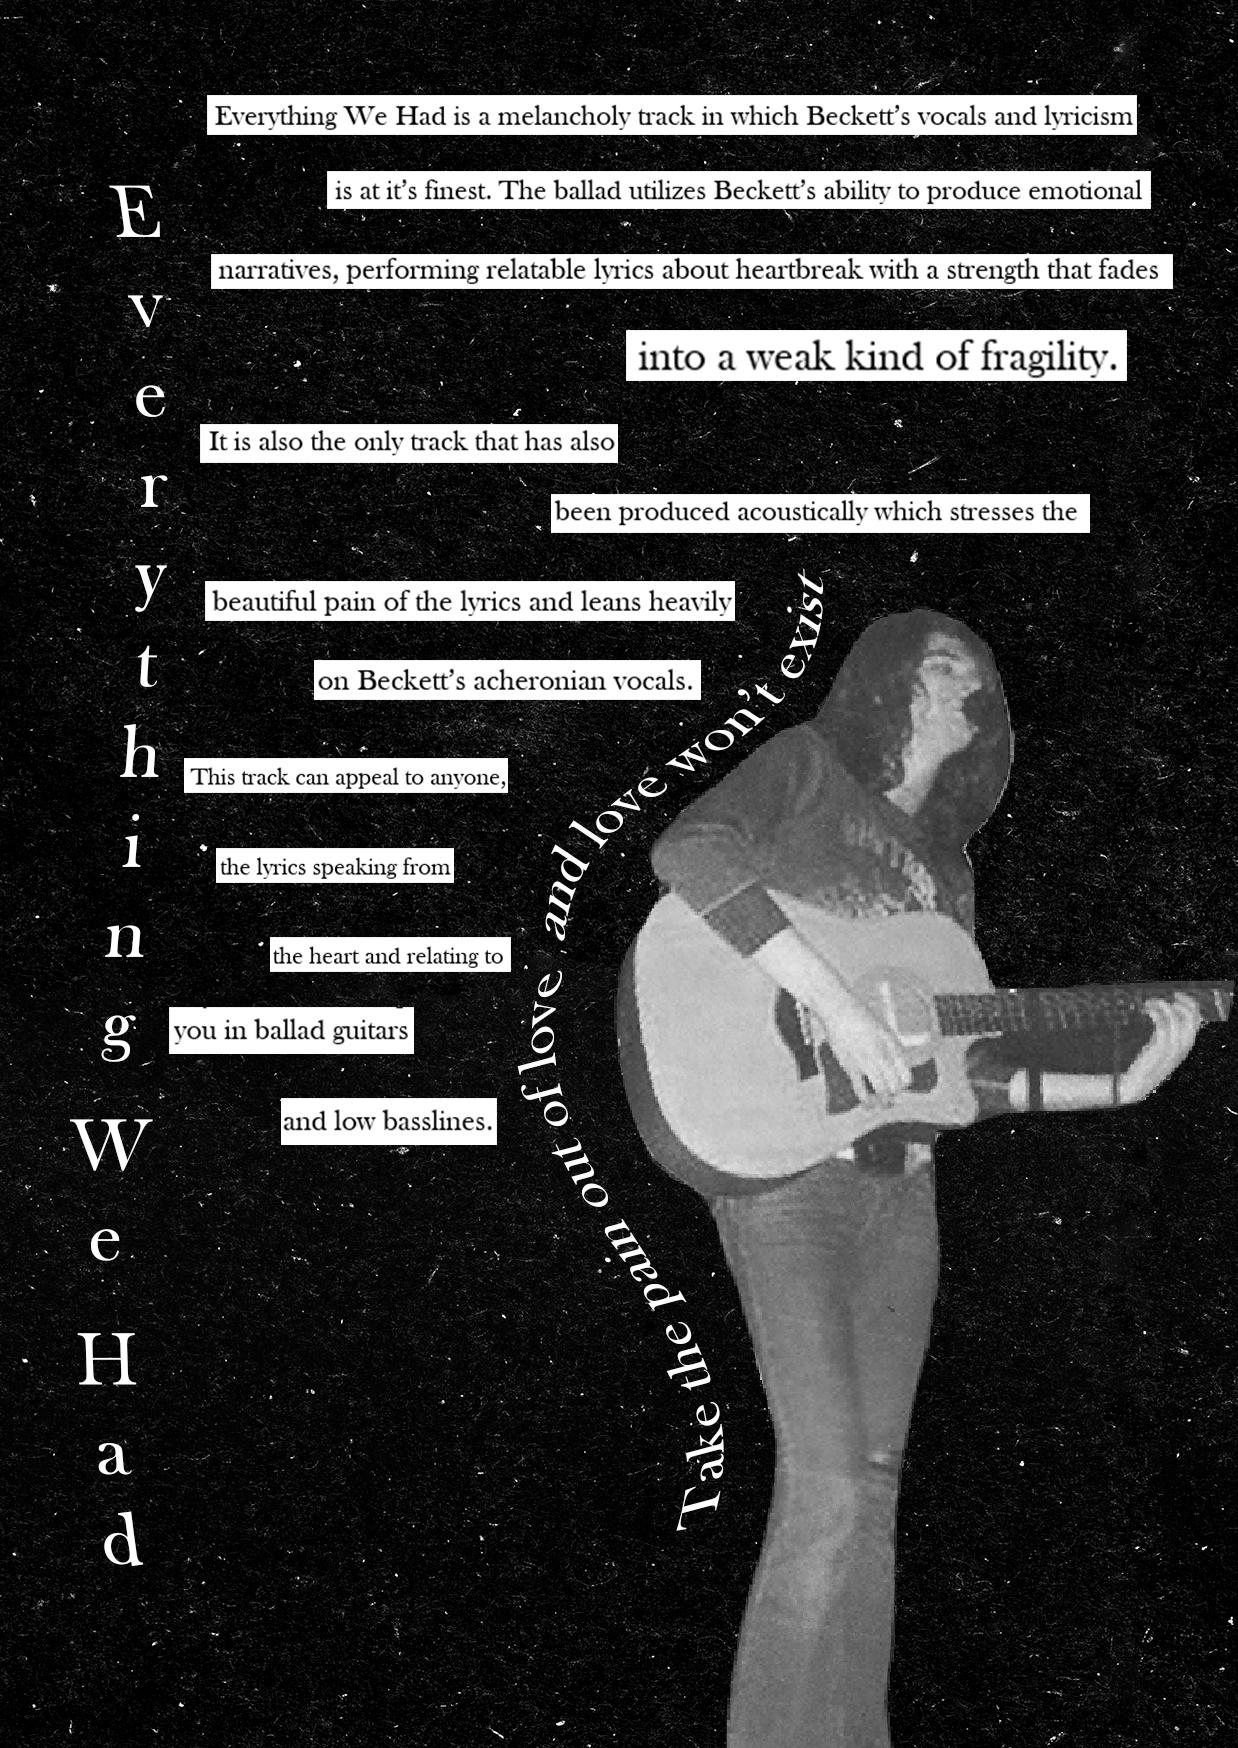 Everything We Had is a melancholy track in which Beckett's vocals and lyricism
is at it's finest. The ballad utilizes Beckett's ability to produce emotional
narratives, performing relatable lyrics about heartbreak with a strength that fades
into a weak kind of fragility.
It is also the only track that has also
been produced acoustically which stresses the
beautiful pain of the lyrics and leans heavily
on Beckett's acheronian vocals.
This track can appeal to anyone,
the lyrics speaking from
the heart and relating to
you in ballad guitars
and low basslines.
Everything We Had
Take the pain out of love and love won't exist